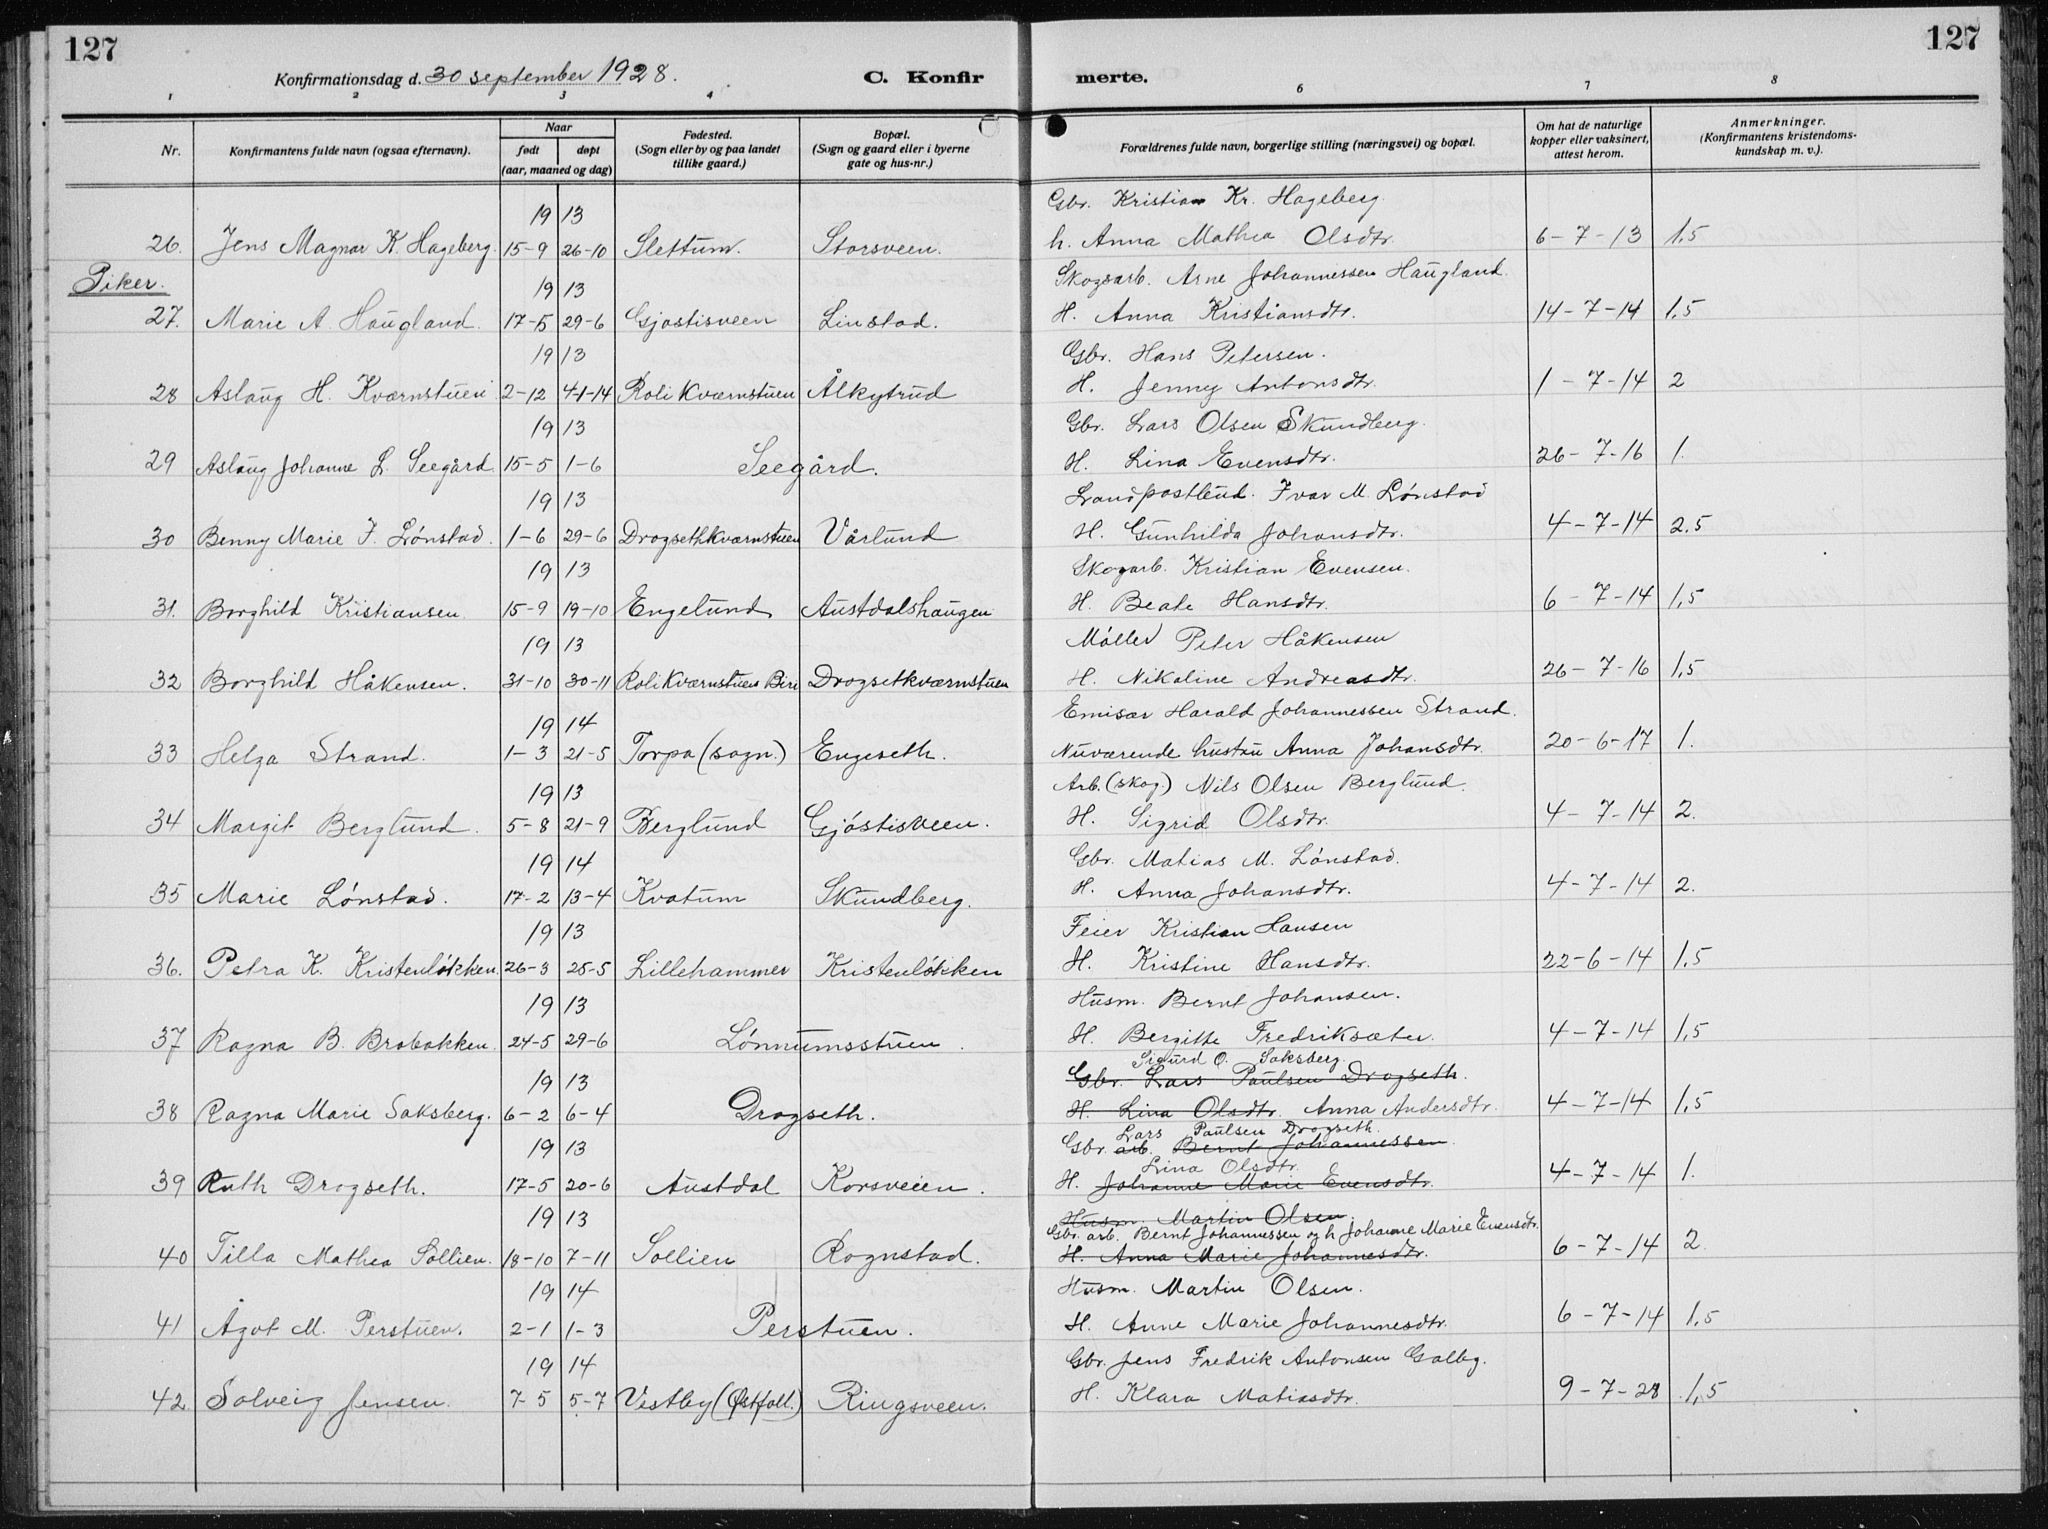 127
127
Konfirmationsdag d. 30 september 1928.
C. Konfir
merte.
1 2 3 4 6 7 8
Nr.
Konfirmantens fulde navn (ogsaa efternavn).
Naar
født
døpt
(aar, maaned og dag)
Fødested.
(Sogn eller by og paa landet
tillike gaard.)
Bopæl.
(Sogn og gaard eller i byerne
gate og hus-nr.)
Forældrenes fulde navn, borgerlige stilling (næringsvei) og bopæl.
Om hat de naturlige
kopper eller vaksinert,
attest herom.
Anmerkninger.
(Konfirmantens kristendoms-
kundskap m. v.).
19 13 Gbr. Kristian Kr. Hageberg.
26. Jens Magnar K. Hageberg. 15-9 26-10 Slettum. Storsveen. h. Anna Mathea Olsdtr. 6-7-13 1,5
Piker.
19 13 Skogsarb. Arne Johannessen Haugland.
27. Marie A. Haugland. 17-5 29-6 Gjøstisveen Linstad. H. Anna Kristiansdtr. 14-7-14 1,5
19 13 Gbr. Hans Petersen.
28 Aslaug H. Kværnstuen 2-12 4-1-14 Roli Kværnstuen Ålkytrud H. Jenny Antonsdtr. 1-7-14 2
19 13 Gbr. Lars Olsen Skundberg.
29 Aslaug Johanne L. Seegård 15-5 1-6 Seegård. H. Lina Evensdtr. 26-7-16 1.
19 13 Landpostbud. Ivar M. Lønstad
30 Benny Marie I. Lønstad. 1-6 29-6 Drogsethkværnstuen Vårlund H. Gunhilda Johansdtr. 4-7-14 2.5
19 13 Skogarb. Kristian Evensen.
31. Borghild Kristiansen. 15-9 19-10 Engelund Austdalshaugen H. Beate Hansdtr. 6-7-14 1,5
19 13 Møller Peter Håkensen
32 Borghild Håkensen. 31-10 30-11 Roli Kværnstuen Biri Drogsetkværnstuen H. Nikoline Andreasdtr. 26-7-16 1,5
19 14 Emisær Harald Johannessen Strand.
33 Helga Strand. 1-3 21-5 Torpa (sogn.) Engeseth. Nuværende hustru Anna Johansdtr. 20-6-17 1.
19 13 Arb. (skog.) Nils Olsen Berglund.
34 Margit Berglund. 5-8 21-9 Berglund Gjøstisveen. H. Sigrid Olsdtr. 4-7-14 2.
19 14 Gbr. Matias M. Lønstad.
35 Marie Lønstad. 17-2 13-4 Kvatum Skundberg. H. Anna Johansdtr. 4-7-14 2.
19 13 Feier Kristian Hansen
36. Petra K. Kristenløkken. 26-3 25-5 Lillehammer Kristenløkken H. Kristine Hansdtr. 22-6-14 1,5
19 13 Husm. Bernt Johansen.
37 Ragna B. Brobakken. 24-5 29-6 Lønnumsstuen. H. Bergitte Fredriksæter. 4-7-14 1,5
Sigurd O. Saksberg.
19 13 Gbr. Lars Paulsen Drogseth.
38 Ragna Marie Saksberg. 6-2 6-4 Drogseth. H. Lina Olsdtr. Anna Andersdtr. 4-7-14 1,5
Lars Paulsen Drogseth.
19 13 Gbr. arb. Bernt Johannessen.
Lina Olsdtr.
39 Ruth Drogseth. 17-5 20-6 Austdal Korsveien. H. Johanne Marie Evensdtr. 4-7-14 1.
19 13 Husm. Martin Olsen.
Gbr. arb. Bernt Johannessen og h Johanne Marie Evensdtr.
40 Tilla Mathea Sollien. 18-10 7-11 Sollien Rognstad. H. Anna Marie Johannesdtr. 6-7-14 2.
19 14 Husm. Martin Olsen.
41 Ågot M. Perstuen. 2-1 1-3 Perstuen. H. Anne Marie Johannesdtr. 6-7-14 1,5
19 14 Gbr. Jens Fredrik Antonsen Galbg.
42 Solveig Jensen. 7-5 5-7 Vestby (Østfoll.) Ringsveen. H. Klara Matiasdtr. 9-7-28 1,5